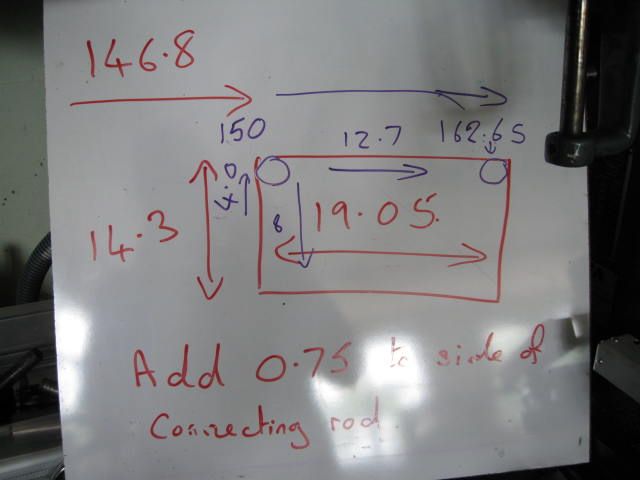 146.8
150 12.7 162.65
4.0
14.3
8 19.05.
Add 0.75 to side of
Connecting rod.